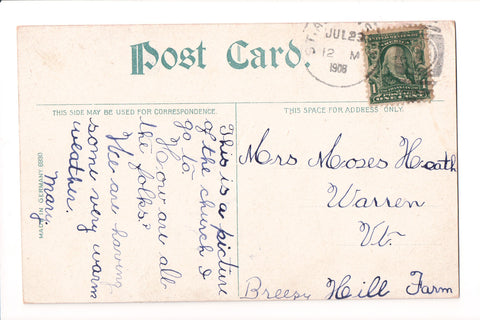 Post Card.
JUL 23
12 M
1908
THIS SIDE MAY BE USED FOR CORRESPONDENCE.
THIS SPACE FOR ADDRESS ONLY.
This is a picture
of the church I
go to.
How are all
the folks?
We are having
some very warm
weather.
Mary.
MADE IN GERMANY
Mrs Moses Heath
Warren
Vt.
Breezy Hill Farm